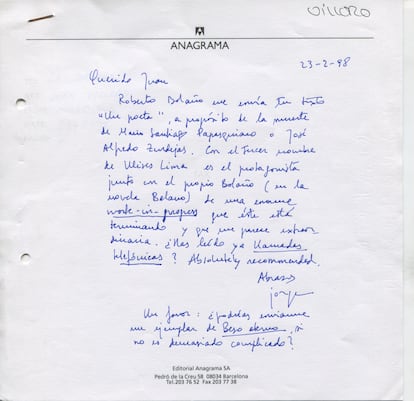 VILLORO
ANAGRAMA
23-2-98
Querido Juan
Roberto Bolaño me envía tu texto
"Un poeta", a propósito de la muerte
de Mario Santiago Papasquiaro o José
Alfredo Zendejas. Con el tercer nombre
de Ulises Lima es el protagonista
junto con el propio Bolaño (en la
novela Belano) de una enorme
work-in-progress que éste está
terminando y que me parece extraor
dinaria. ¿Has leído ya Llamadas
telefónicas? Absolutely recommended.
Abrazos
Jorge
Un favor: ¿podrías enviarme
un ejemplar de Beso eterno, si
no es demasiado complicado?
Editorial Anagrama SA
Pedró de la Creu 58 08034 Barcelona
Tel. 203 76 52 Fax 203 77 38